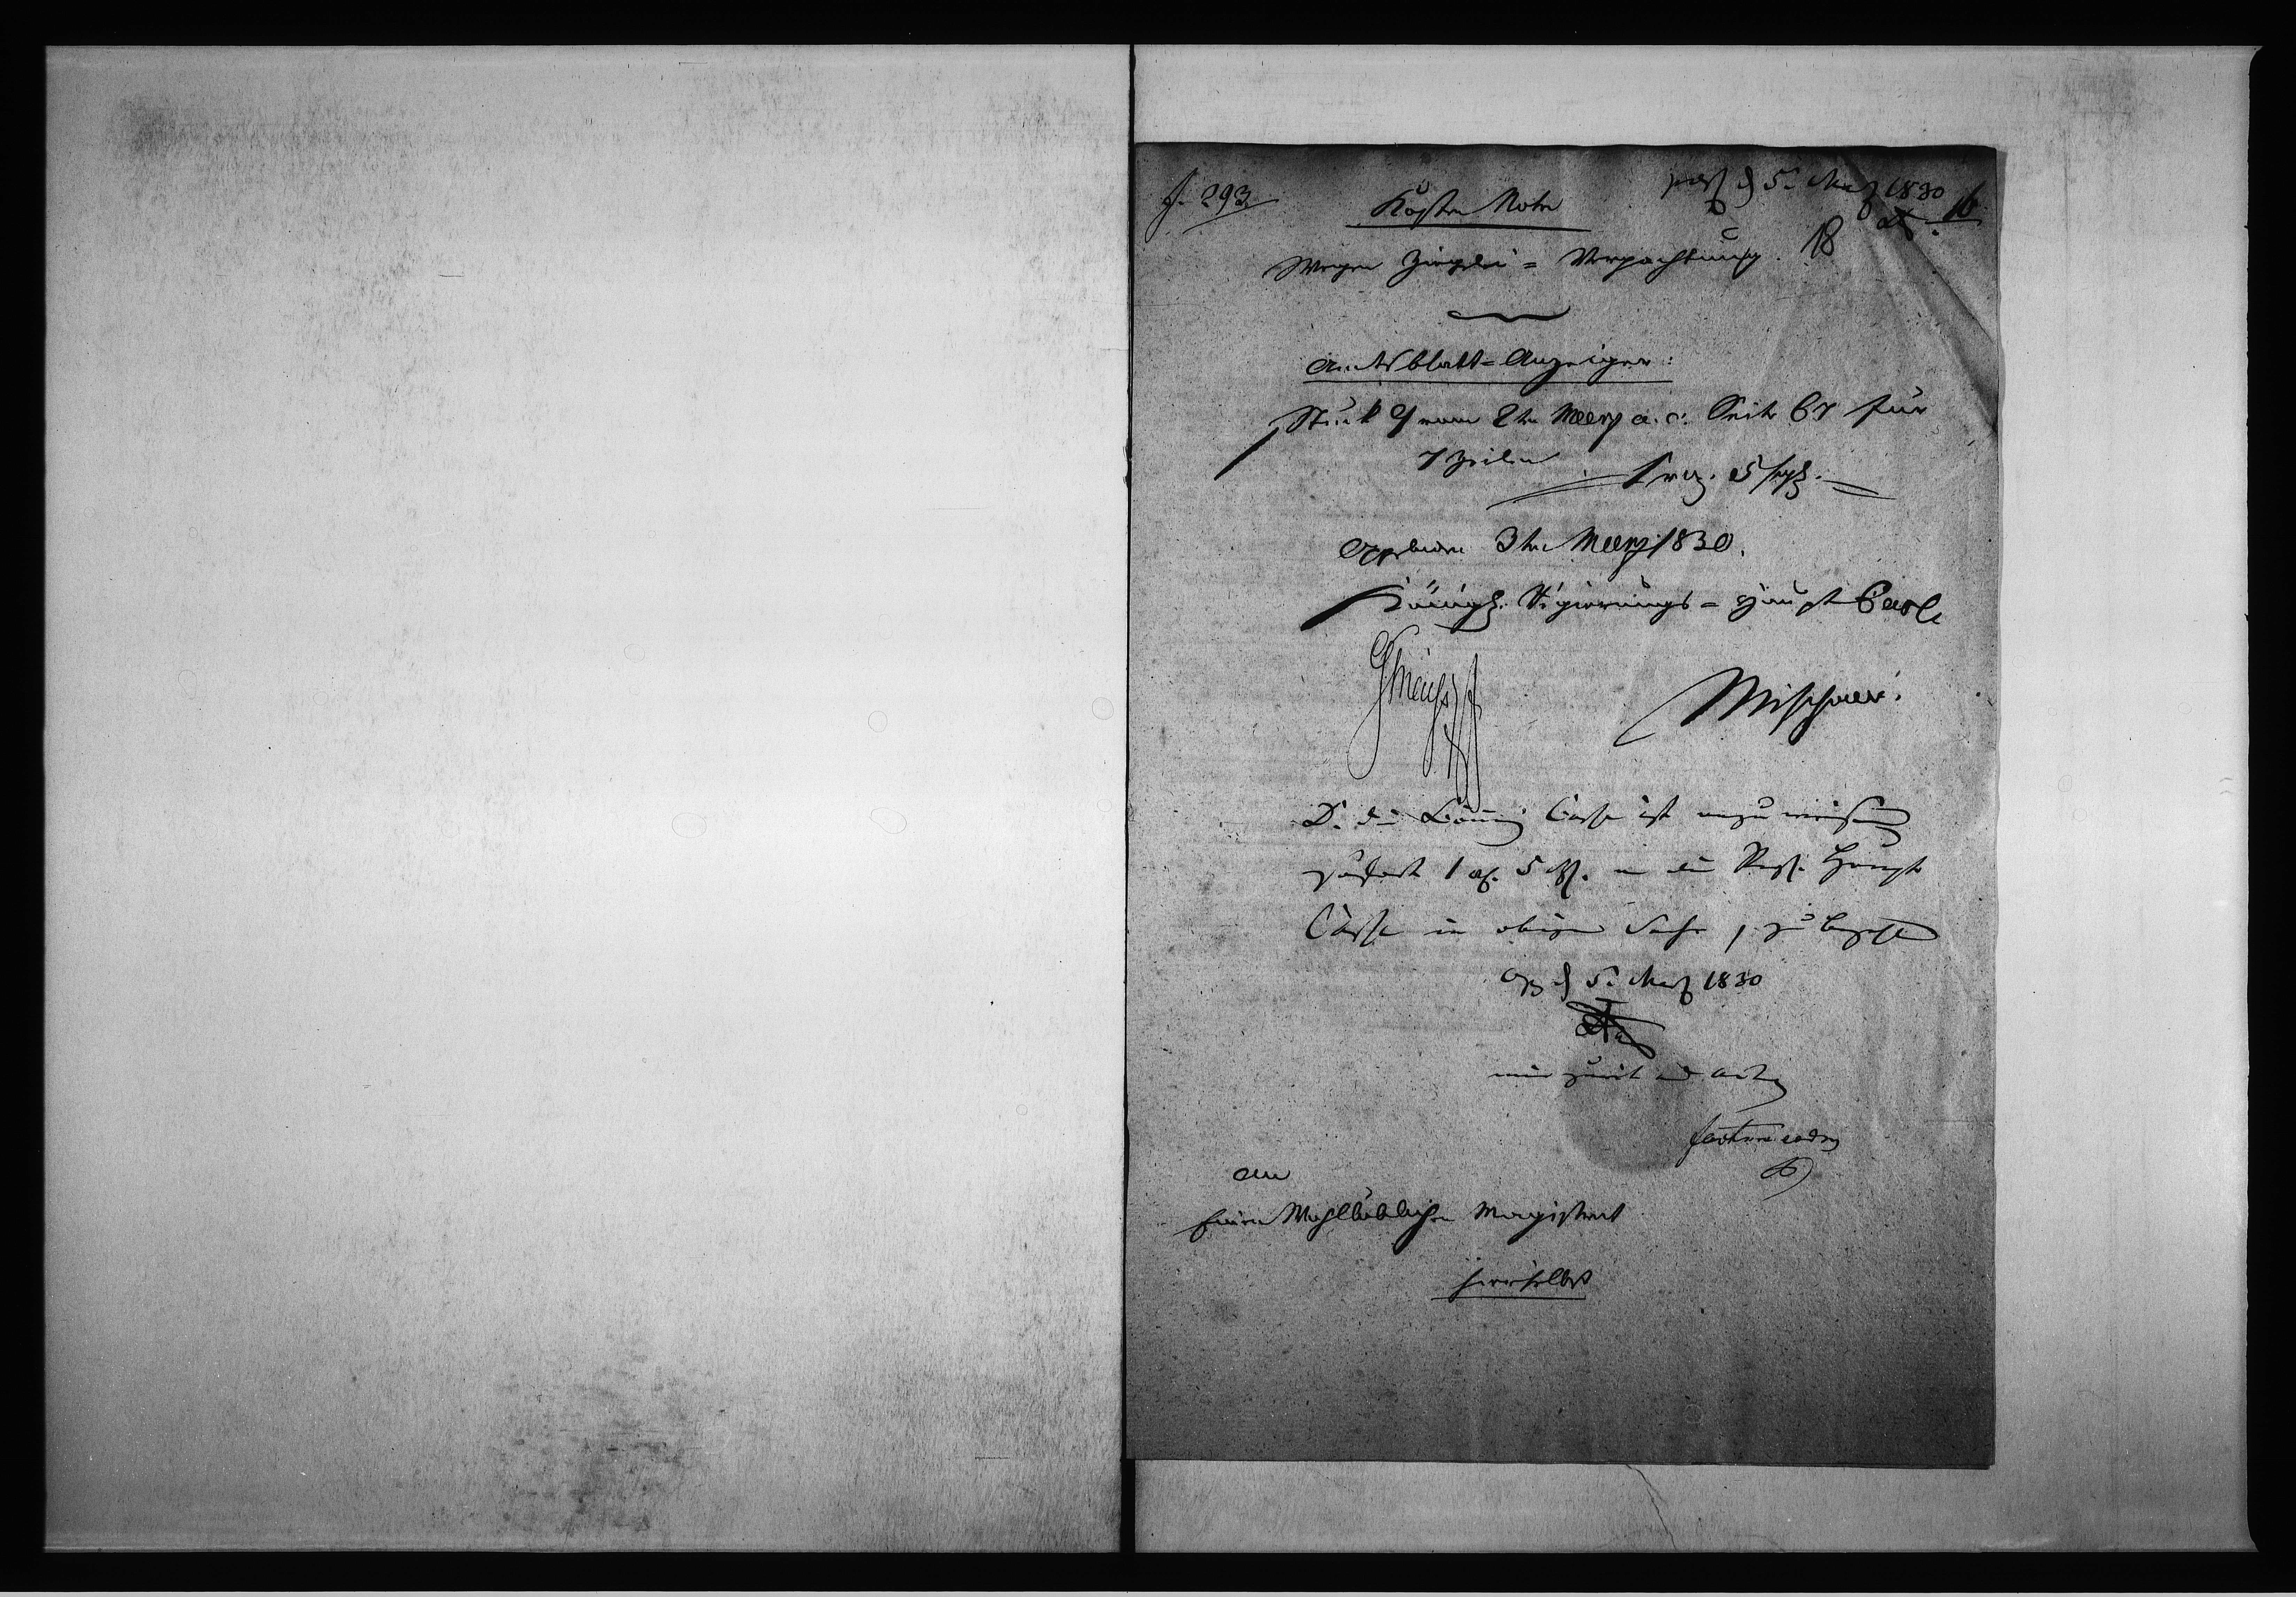 J. 293.
praes d 5. Merz 1830
16
18
Kosten Note
Wegen Ziegelei = Verpachtung.
Amtsblatt=Anzeiger:
Stück 9 vom 2ten Merz a. c. Seite 67 für
7 Zeilen
1 rtl. 5 sgl.
Oppeln den 3ten Merz 1830.
Königl. Regierungs = Haupt Casse
D. die Cämmerei Casse ist anzuweisen
1 rtl. 5 sgl. an die Reg. Haupt
Casse in obiger Sache, zu bezahlen
Opp d 5. Merz 1830
ad acta
An
Einen Wohllöblichen Magistrat
hierselbst